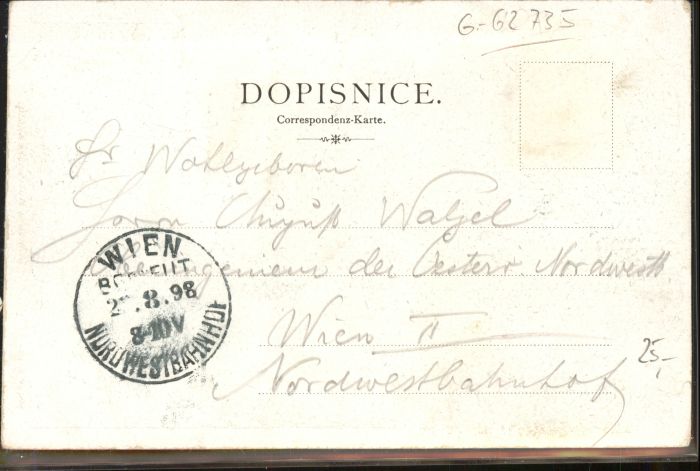 G-62735
DOPISNICE.
Correspondenz-Karte.
Sr Wohlgeboren
Herrn August Walzel
der Oesterr Nordwestb
Wien II
Nordwestbahnhof
25,-
WIEN
BESTELLT
8.98
8-10V
NORDWESTBAHNHOF